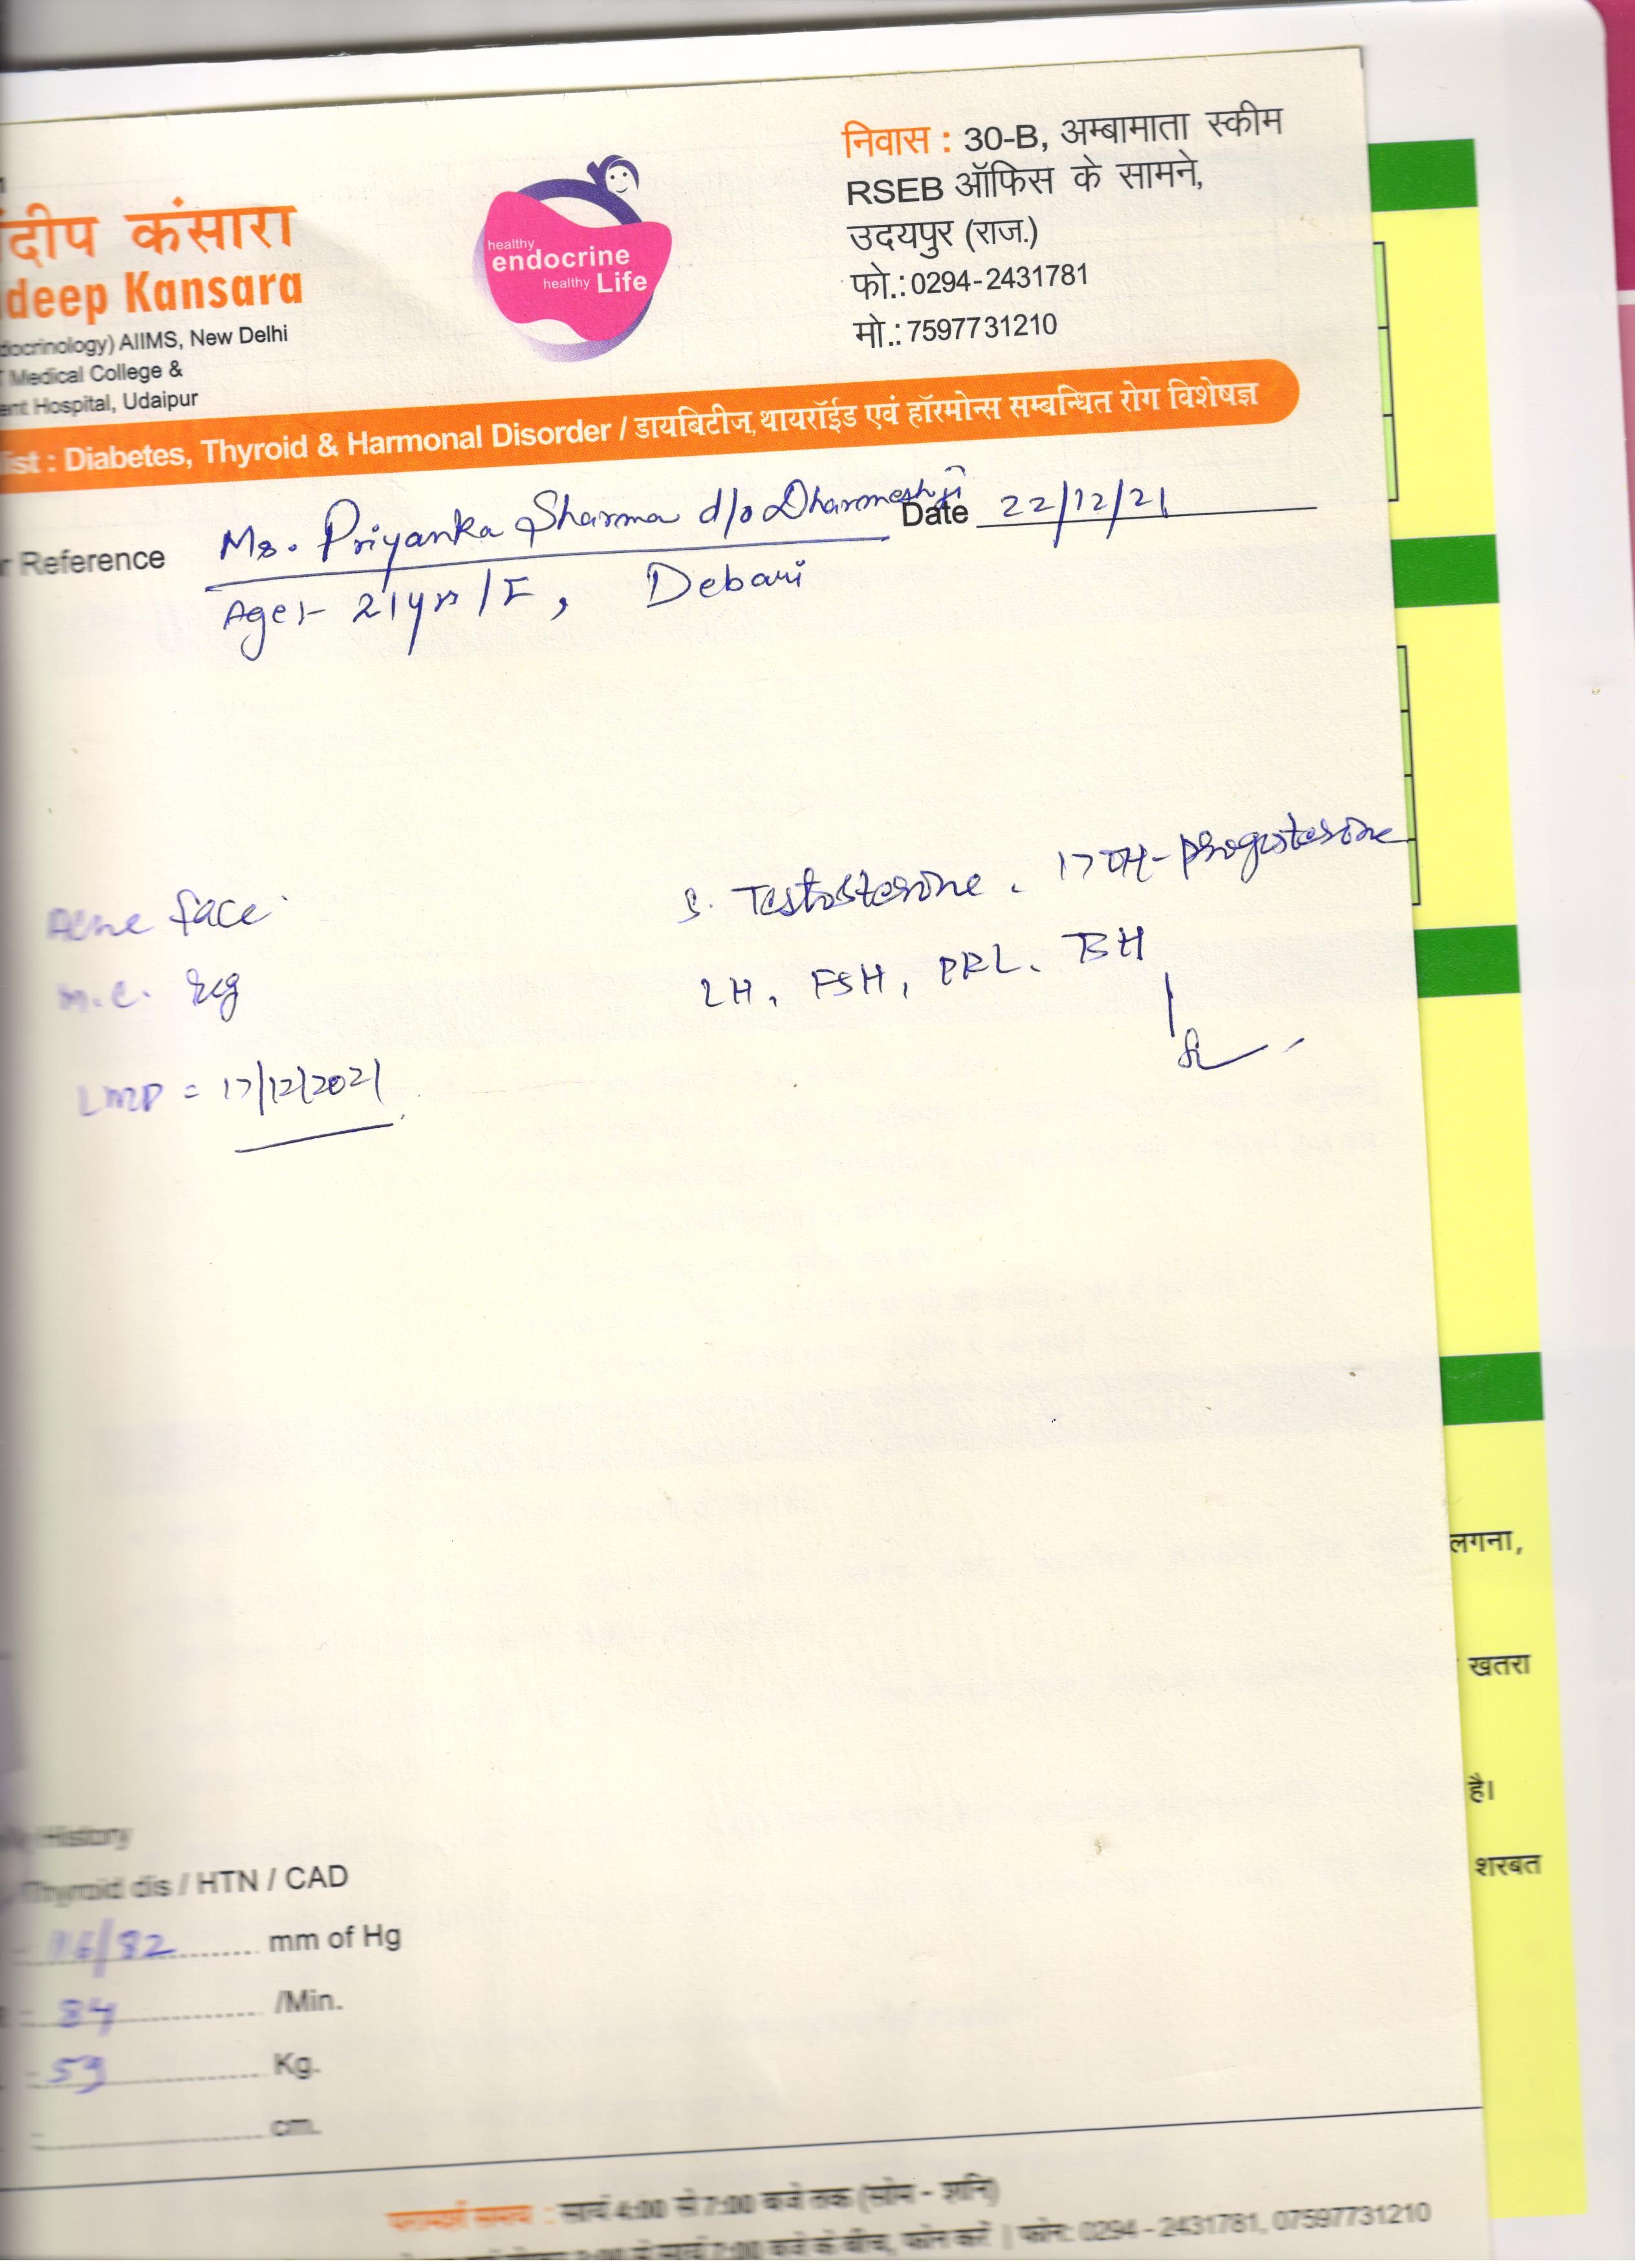 ंदीप कंसारा
deep Kansara
docrinology) AIIMS, New Delhi
Medical College &
ent Hospital, Udaipur
healthy
endocrine
healthy Life
निवास : 30-B, अम्बामाता स्कीम
RSEB ऑफिस के सामने,
उदयपुर (राज.)
फो.: 0294-2431781
मो.: 7597731210
ist : Diabetes, Thyroid & Harmonal Disorder / डायबिटीज, थायरॉईड एवं हॉरमोन्स सम्बन्धित रोग विशेषज्ञ
r Reference Ms. Priyanka Sharma d/o Dharmeshji Date 22/12/21
Age:- 21yrs/F, Debari
Acne face
S. Testosterone, 17OH-Progesterone
M.C. Reg
LH, FSH, PRL, TSH
LMP = 17/12/2021
लगना,
खतरा
है।
शरबत
History
Thyroid dis / HTN / CAD
116/82 mm of Hg
84 /Min.
59 Kg.
cm.
परामर्श समय : सायं 4:00 से 7:00 बजे तक (सोम - शनि)
7:00 बजे के बीच, फोन करें | फोन: 0294 - 2431781, 07597731210